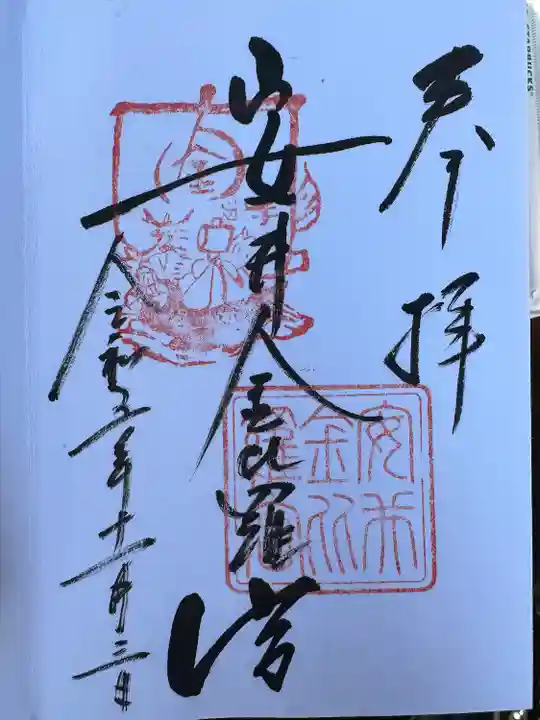 奉拝
安井金比羅宮
令和五年十一月三日
安井
金比
羅宮
STARBUCKS